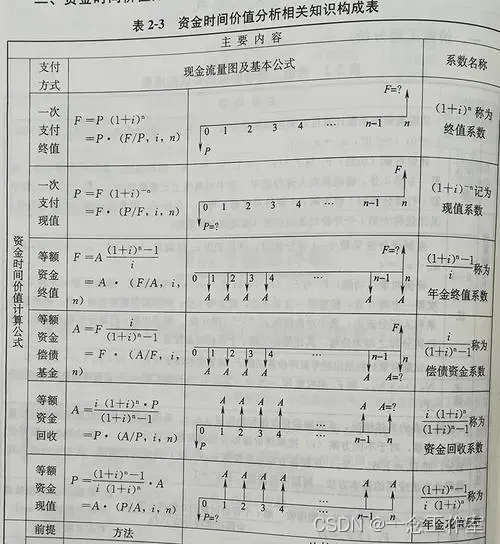 二、资金时间价值
表 2-3 资金时间价值分析相关知识构成表
主要内容
支付方式 现金流量图及基本公式 系数名称
资金时间价值计算公式
一次支付终值
F=P (1+i)ⁿ
=P·(F/P, i, n)
F=?
0 1 2 3 4 … n-1 n
P
(1+i)ⁿ 称为
终值系数
一次支付现值
P=F (1+i)⁻ⁿ
=F·(P/F, i, n)
F
0 1 2 3 4 … n-1 n
P=?
(1+i)⁻ⁿ记为
现值系数
等额资金终值
F=A (1+i)ⁿ-1
i
=A·(F/A, i,
n)
F=?
0 1 2 3 4 … n-1 n
A A A A A A
(1+i)ⁿ-1 称为
i
年金终值系数
等额资金偿债基金
A=F i
(1+i)ⁿ-1
=F·(A/F, i,
n)
F
0 1 2 3 4 … n-1 n
A A A A A A=?
i 称为
(1+i)ⁿ-1
偿债资金系数
等额资金回收
A= i (1+i)ⁿ·P
(1+i)ⁿ-1
=P·(A/P, i, n)
A A A A A A=?
0 1 2 3 4 … n-1 n
P
i (1+i)ⁿ 称为
(1+i)ⁿ-1
资金回收系数
等额资金现值
P= (1+i)ⁿ-1 ·A
i (1+i)ⁿ
=A·(P/A, i, n)
A A A A A A
0 1 2 3 4 … n-1 n
P=?
(1+i)ⁿ-1 称为
i (1+i)ⁿ
年金现值系数
前提 方法
CSDN @一念工作室